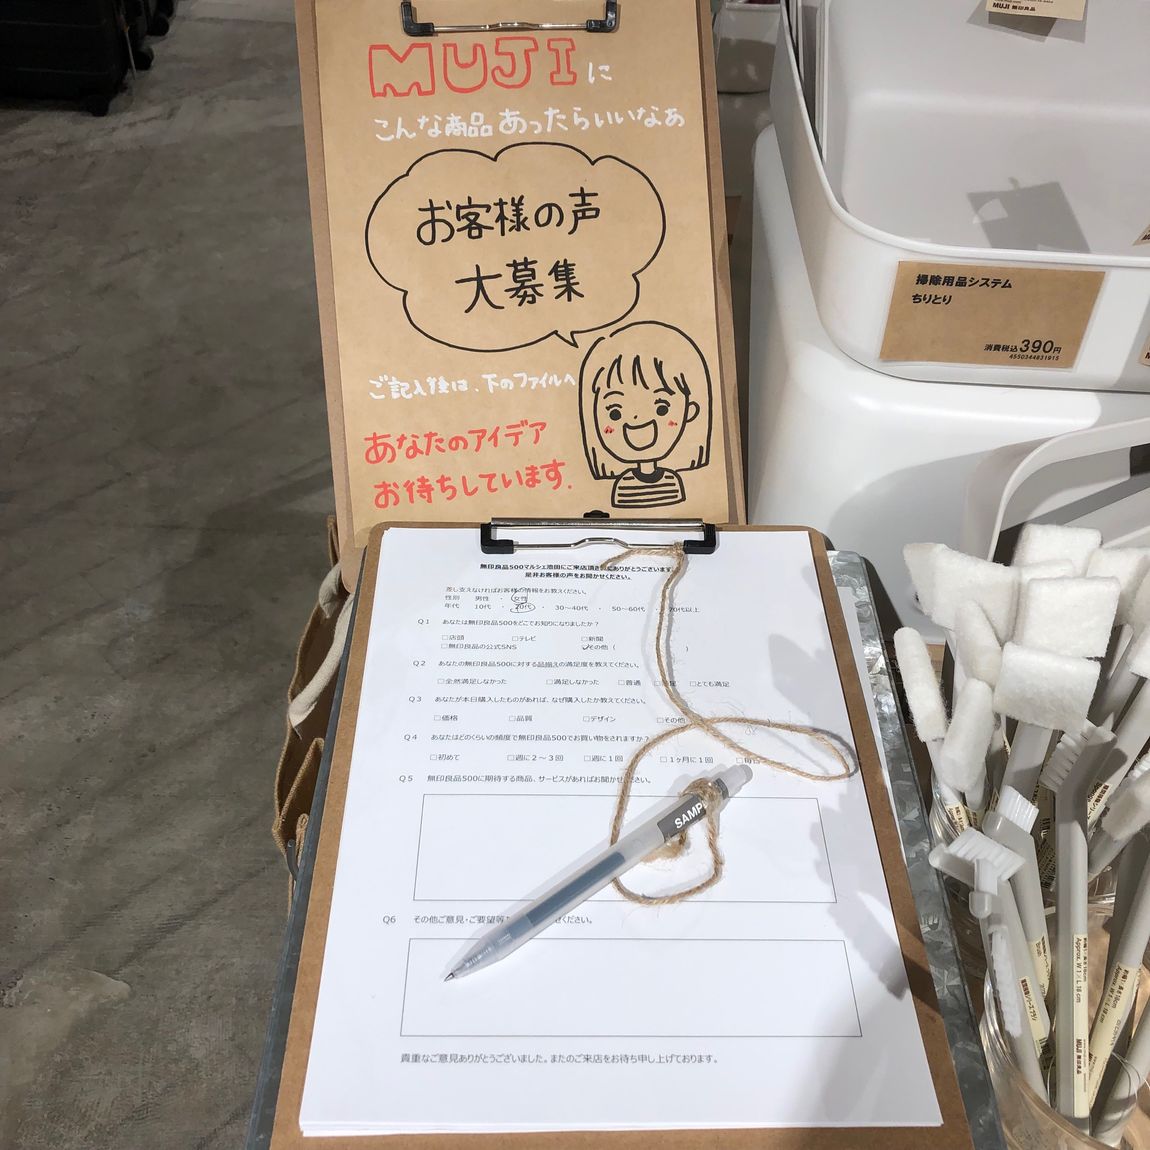 MUJIに
こんな商品あったらいいなぁ
お客様の声
大募集
ご記入後は、下のファイルへ
あなたのアイデア
お待ちしています.
無印良品500マルシェ池田にご来店頂き
ありがとうございます。
是非お客様の声をお聞かせください。
差し支えなければお客様の情報をお教えください。
性別 男性 ・ 女性
年代 10代 ・ 20代 ・ 30～40代 ・ 50～60代 ・ 70代以上
Q1 あなたは無印良品500をどこでお知りになりましたか？
□店頭 □テレビ □新聞
□無印良品の公式SNS □その他（ ）
Q2 あなたの無印良品500に対する品揃えの満足度を教えてください。
□全然満足しなかった □満足しなかった □普通 □満足 □とても満足
Q3 あなたが本日購入したものがあれば、なぜ購入したか教えてください。
□価格 □品質 □デザイン □その他
Q4 あなたはどのくらいの頻度で無印良品500でお買い物をされますか？
□初めて □週に2～3回 □週に1回 □1ヶ月に1回 □毎日
Q5 無印良品500に期待する商品、サービスがあればお聞かせください。
SAMP
Q6 その他ご意見・ご要望等 ください。
貴重なご意見ありがとうございました。またのご来店をお待ち申し上げております。
MUJI 無印良品
掃除用品システム
ちりとり
消費税込390円
4550344831915
Brush
Approx. W 1 × L 18 cm
MUJI 無印良品